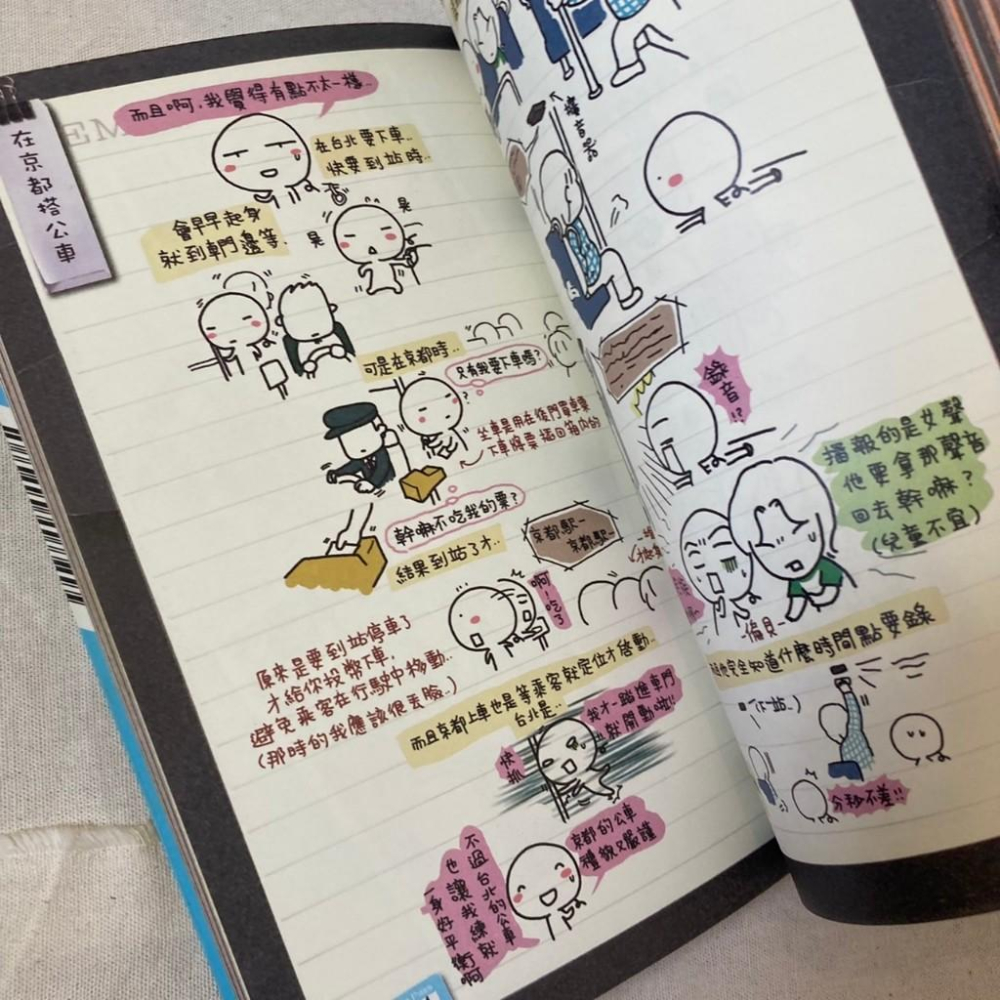 在京都搭公車
而且啊,我覺得有點不太一樣..
在台北要下車..
快要到站時..
會早早起身
就到車門邊等.
晃
晃
可是在京都時..
只有我要下車嗎?
?
坐車是用在後門買車票
下車將票插回箱內的
幹嘛不吃我的票?
結果到站了才..
京都駅~
京都駅~
啊!吃了
原來是要到站停車了
才給你投幣下車.
避免乘客在行駛中移動..
(那時的我應該很丟臉.)
而且京都上車也是等乘客就定位才啟動..
台北是..
我才一踏進車門
就開動啦!!
快抓
京都的公車
禮貌又嚴謹
不過台北的公車
也讓我練就
一身好平衡啊
播音器
錄音!?
播報的是女聲
他要拿那聲音
回去幹嘛?
(兒童不宜)
-偏見-
他完全知道什麼時間點要錄
(下~站..)
分秒不差!!